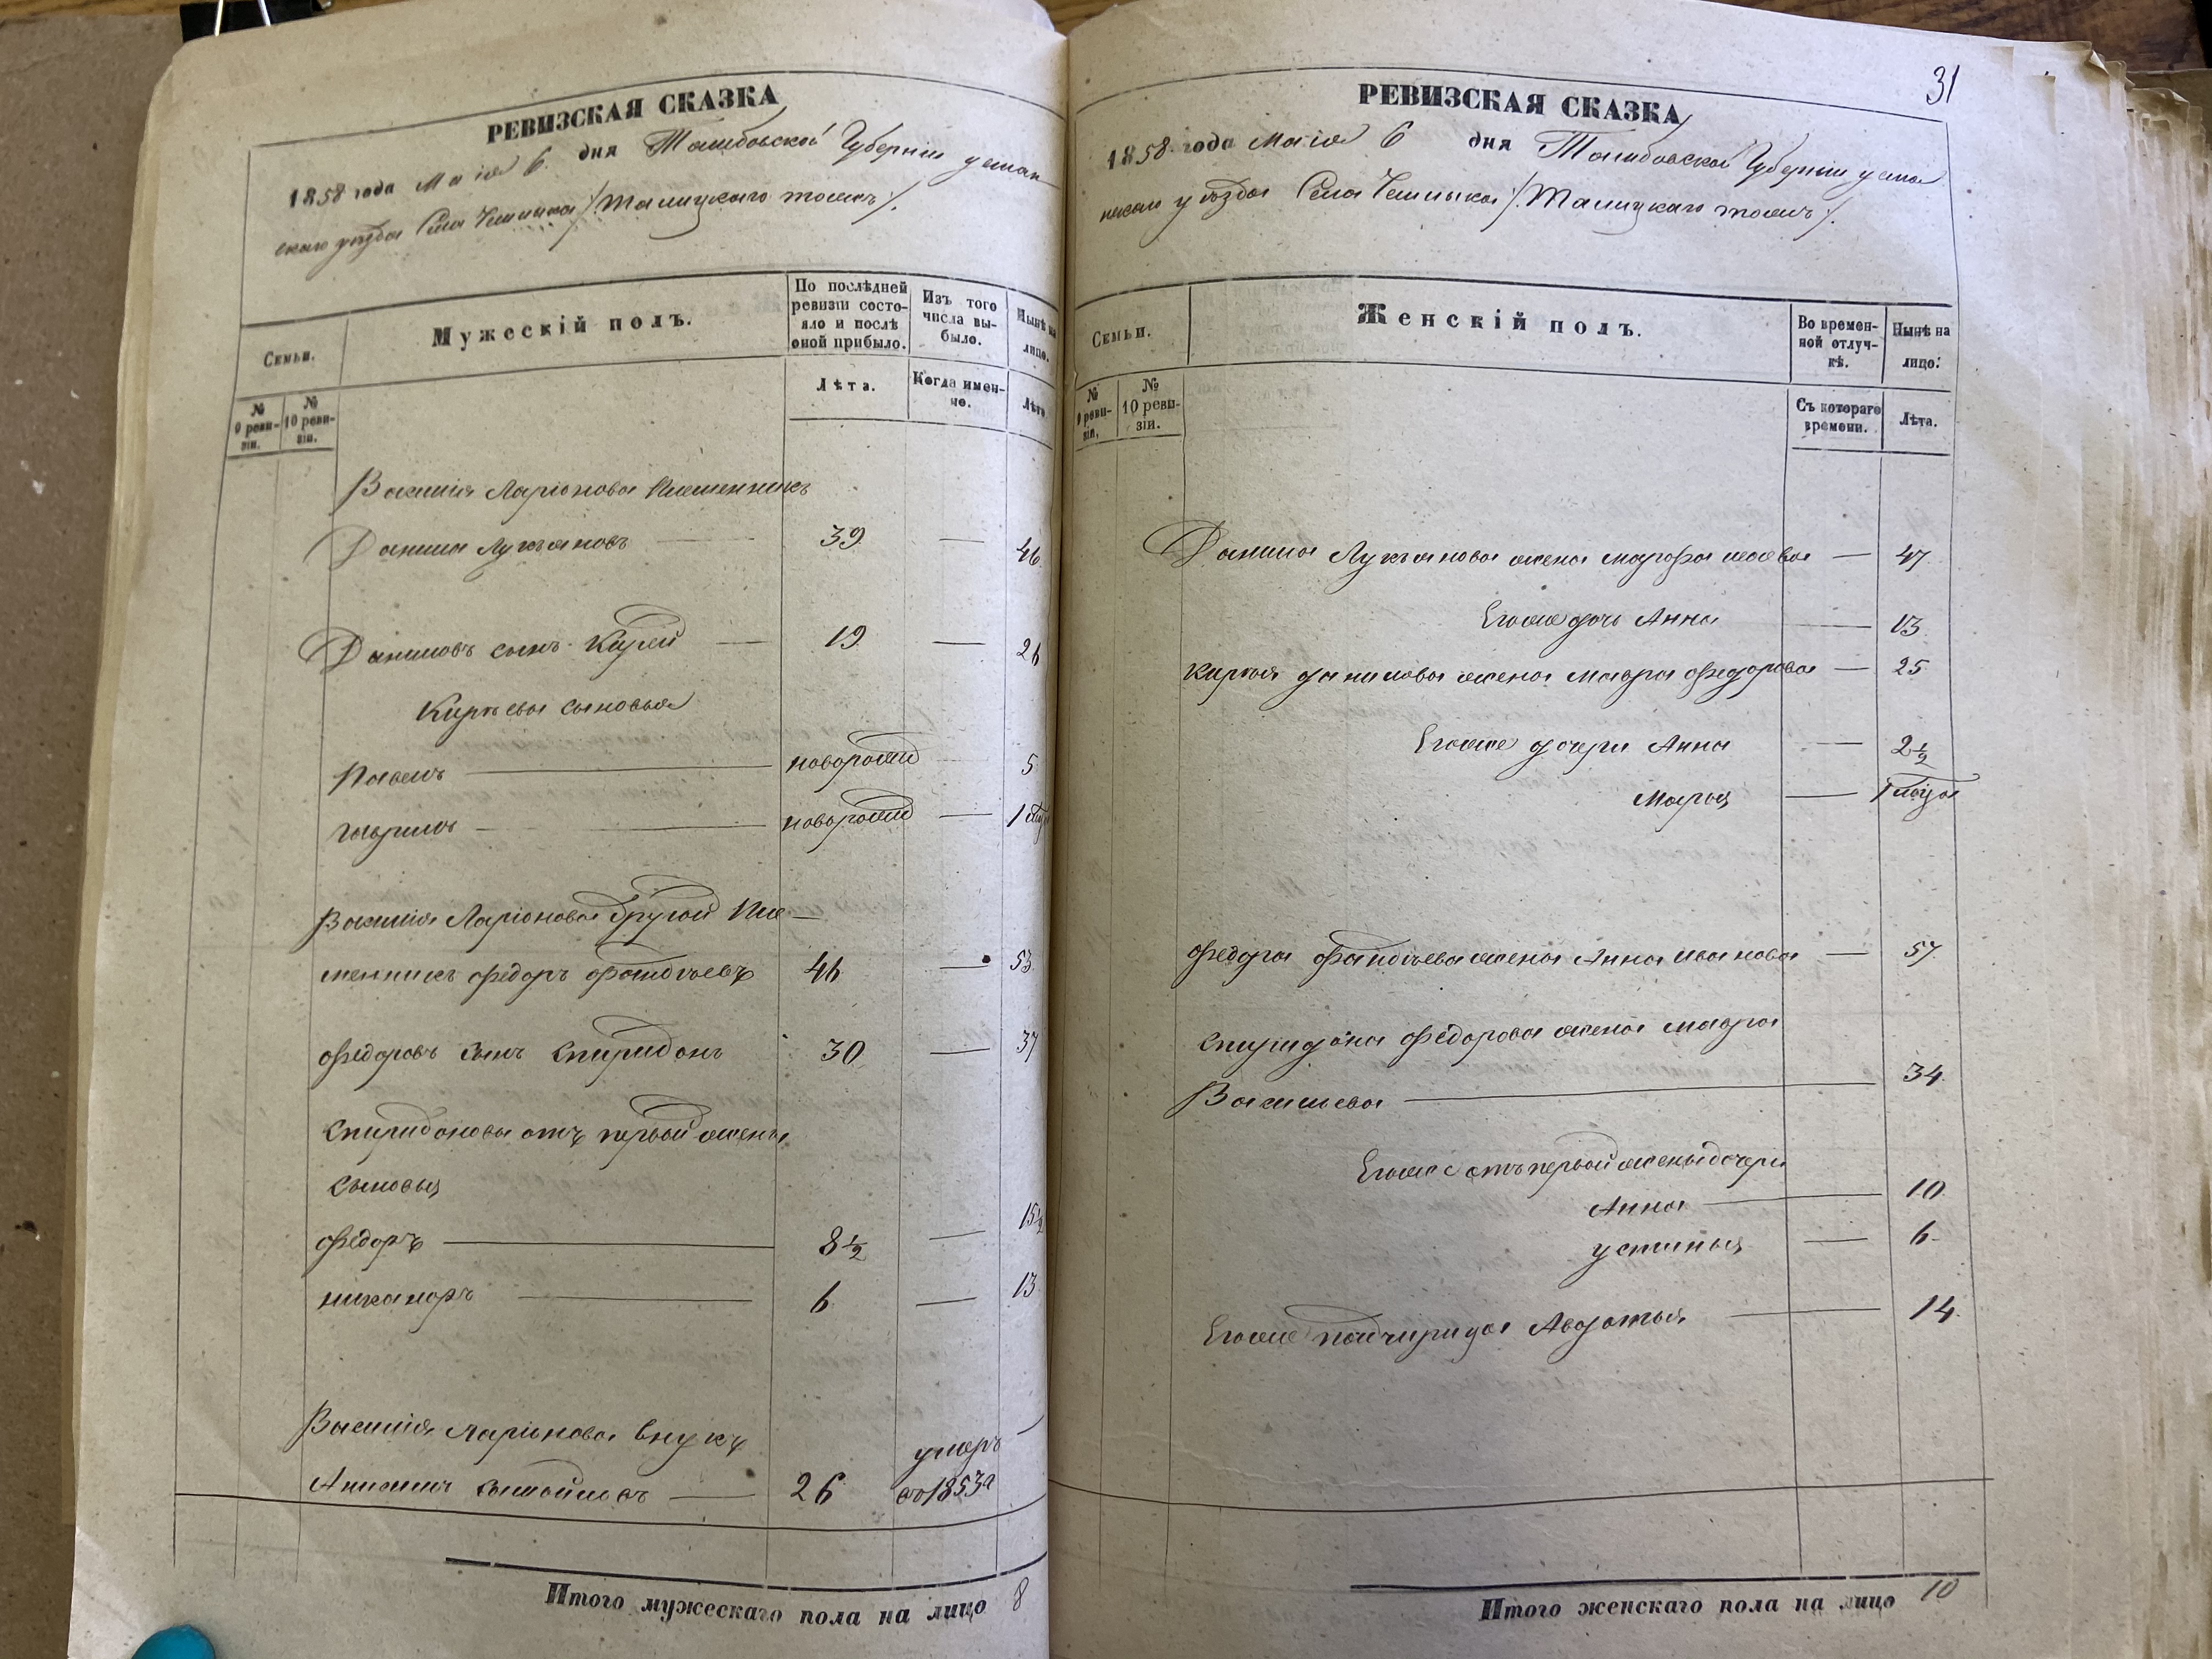 РЕВИЗСКАЯ СКАЗКА
1858 года Маія 6 дня Тамбовской Губерніи усман
скаго уѣзда Села /Талицкаго тожъ/.
Семьи.
Мужескій полъ.
По послѣдней ревизіи состояло и послѣ оной прибыло.
Изъ того числа выбыло.
Нынѣ на лицо.
№ 9 ревизіи.
№ 10 ревизіи.
Лѣта.
Когда именно.
Лѣта
Василія Ларіонова племенникъ
Данила Лукъяновъ 39 46
Даниловъ сынъ Кирей 19 26
Киръева сыновья
Павелъ новорожд 5
гаврилъ новорожд 1
Василія Ларіонова другой пле
менникъ федоръ фатѣевъ 46 53
федоровъ сынъ спиридонъ 30 37
спиридоновы отъ первой жены
сыновья
федоръ 8½ 15½
никаноръ 6 13
Василія Ларіонова внукъ
26 умеръ
въ 1853г
Итого мужескаго пола на лицо 8
31
РЕВИЗСКАЯ СКАЗКА
1858 года Маія 6 дня Тамбовской Губерніи усма
нскаго уѣзда Села /Талицкаго тожъ/.
Семьи.
Женскій полъ.
Во временной отлучкѣ.
Нынѣ на лицо.
№ 9 ревизіи.
№ 10 ревизіи.
Съ котораго времени.
Лѣта.
Данила Лукъянова жена марфа 47
Егоже дочь Анна 13
кирея данилова жена мавра федорова 25
Егоже дочери Анна 2½
Марья
федора фатѣева жена Анна иванова 57
спиридона федорова жена мавра
Васильева 34
Егоже отъ первой жены дочери
Анна 10
устинья 6
Егоже падчирица Авдотья 14
Итого женскаго пола на лицо 10